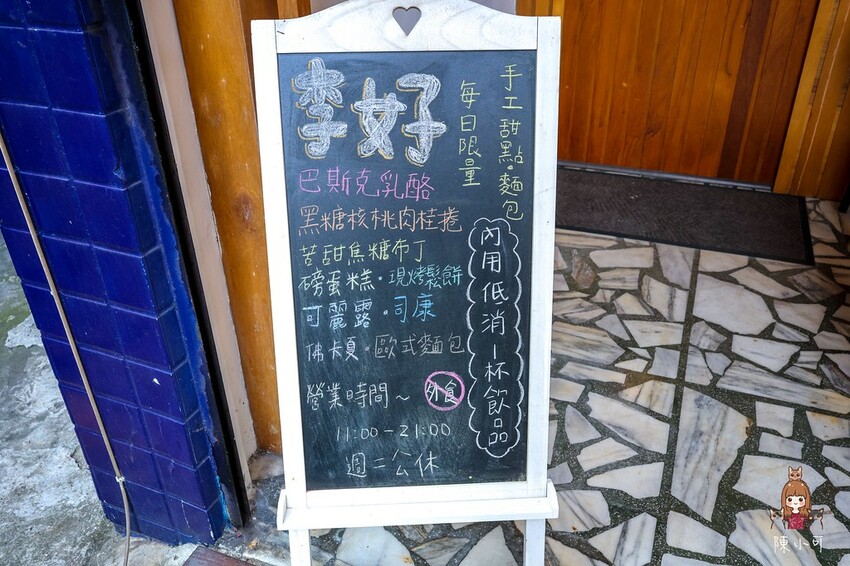 李好
手工甜點·麵包
每日限量
巴斯克乳酪
黑糖核桃肉桂捲
苦甜焦糖布丁
磅蛋糕·現烤鬆餅
可麗露·司康
佛卡夏·歐式麵包
內用低消一杯飲品
營業時間~
外食
11:00-21:00
週二公休
陳小可